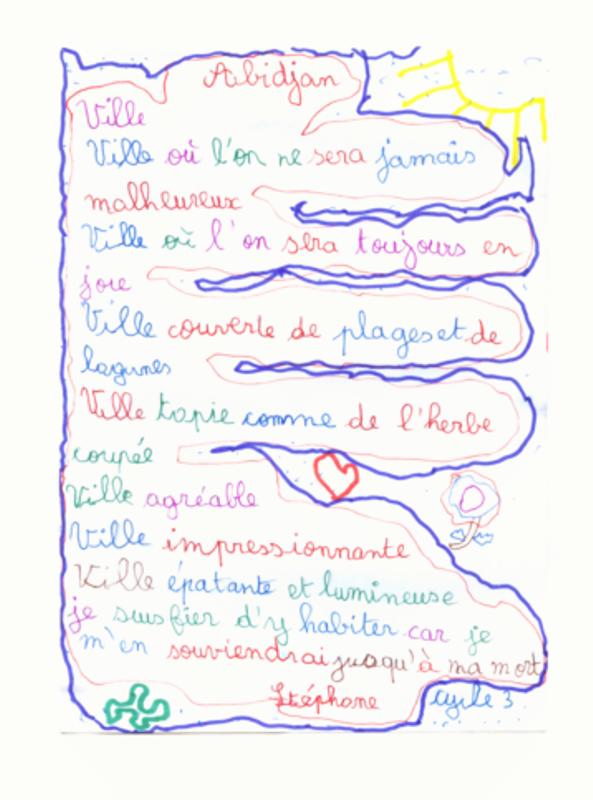 Abidjan
Ville
Ville où l'on ne sera jamais
malheureux
Ville où l'on sera toujours en
joie
Ville couverte de plages et de
lagunes
Ville tapie comme de l'herbe
coupée
Ville agréable
Ville impressionnante
Ville épatante et lumineuse
je suis fier d'y habiter car je
m'en souviendrai jusqu'à ma mort
Stéphane cycle 3